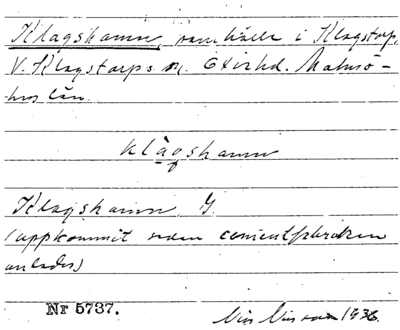 Klagshamn, samhälle i Klagstorp,
V. Klagstorps sn. Oxie hd. Malmö-
hus län.
klågshamn
Klagshamn, G.
(uppkommit sedan cementfabriken
anlades)
Nr 5737.
Nils Nilsson 1936